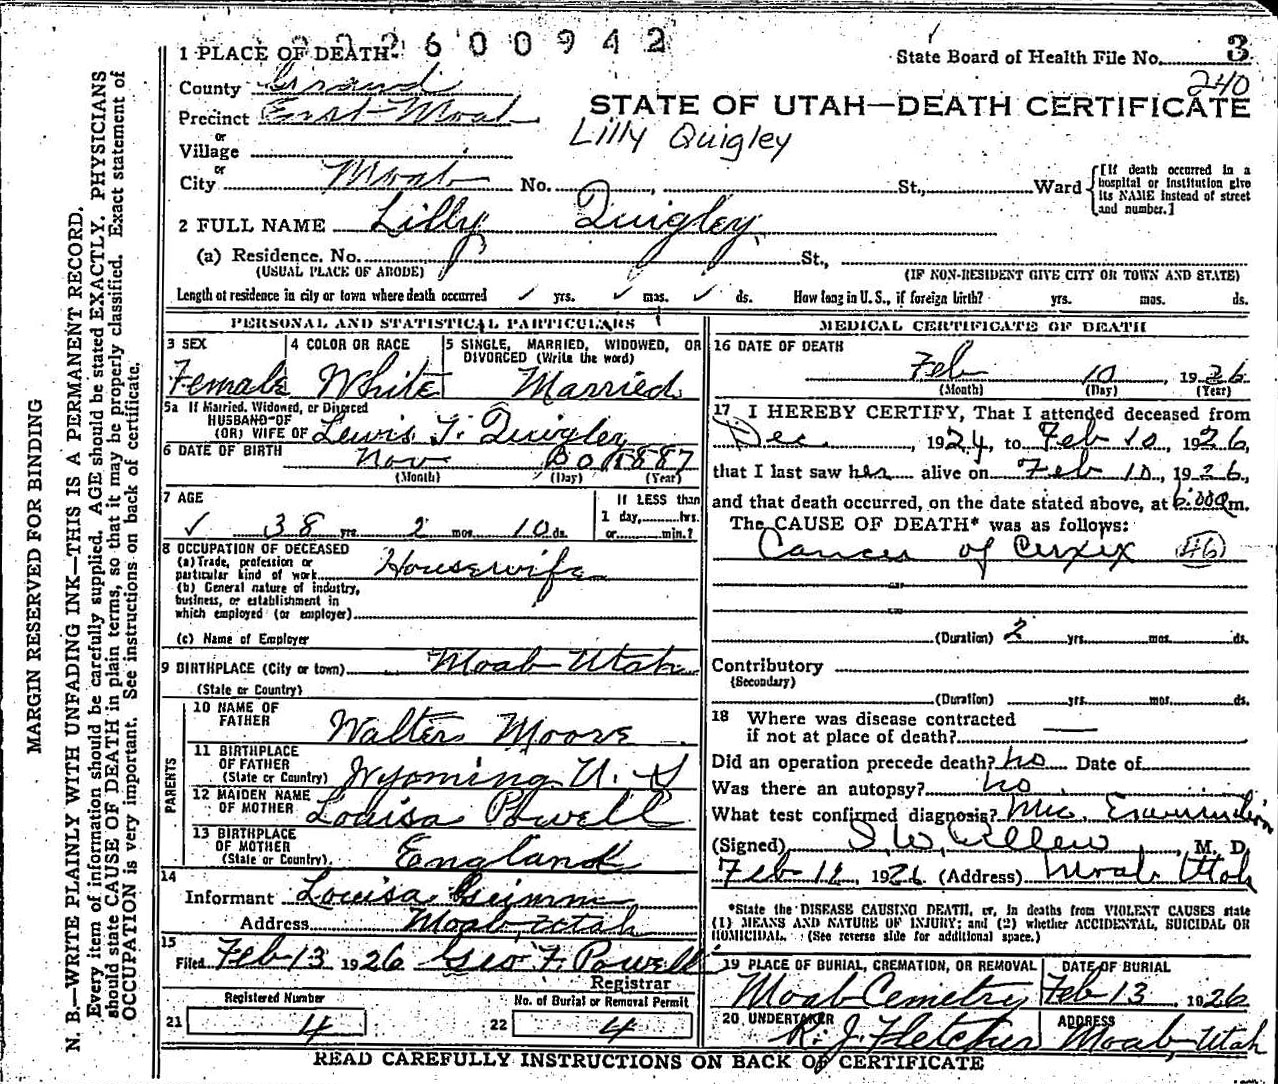 2600942
1 PLACE OF DEATH
State Board of Health File No. 3
240
County Grand
STATE OF UTAH—DEATH CERTIFICATE
Precinct East Moab
Lilly Quigley
or
Village
or
City Moab No. St., Ward
[If death occurred in a hospital or institution give its NAME instead of street and number.]
2 FULL NAME Lilly Quigley
(a) Residence. No. St.,
(USUAL PLACE OF ABODE) (IF NON-RESIDENT GIVE CITY OR TOWN AND STATE)
Length of residence in city or town where death occurred ✓ yrs. ✓ mos. ✓ ds. How long in U.S., if foreign birth? yrs. mos. ds.
PERSONAL AND STATISTICAL PARTICULARS
3 SEX
Female
4 COLOR OR RACE
White
5 SINGLE, MARRIED, WIDOWED, OR DIVORCED (Write the word)
Married
5a If Married, Widowed, or Divorced
HUSBAND OF
(OR) WIFE OF Lewis T. Quigley
6 DATE OF BIRTH Nov 1887
(Month) (Day) (Year)
7 AGE
✓ 38 yrs. 2 mos. 10 ds.
If LESS than
1 day, hrs.
or min.?
8 OCCUPATION OF DECEASED
(a) Trade, profession or
particular kind of work Housewife
(b) General nature of industry,
business, or establishment in
which employed (or employer)
(c) Name of Employer
9 BIRTHPLACE (City or town) Moab Utah
(State or Country)
PARENTS
10 NAME OF FATHER Walter Moore
11 BIRTHPLACE OF FATHER (State or Country) Wyoming U. S
12 MAIDEN NAME OF MOTHER Louisa Powell
13 BIRTHPLACE OF MOTHER (State or Country) England
14
Informant Louisa
Address Moab, Utah
15
Filed Feb 13 1926 Geo F. Powell
Registrar
Registered Number
21 4
No. of Burial or Removal Permit
22 4
MEDICAL CERTIFICATE OF DEATH
16 DATE OF DEATH
Feb 10, 1926
(Month) (Day) (Year)
17 I HEREBY CERTIFY, That I attended deceased from
Dec., 1924, to Feb 10, 1926,
that I last saw her alive on Feb 10, 1926,
and that death occurred, on the date stated above, at 6:00 a m.
The CAUSE OF DEATH* was as follows:
Cancer of Cervix 46
(Duration) 2 yrs. mos. ds.
Contributory
(Secondary)
(Duration) yrs. mos. ds.
18 Where was disease contracted
if not at place of death? —
Did an operation precede death? no Date of
Was there an autopsy? no
What test confirmed diagnosis? Mic. Examination
(Signed) , M. D.
Feb 12, 1926 (Address) Moab Utah
*State the DISEASE CAUSING DEATH, or, in deaths from VIOLENT CAUSES state
(1) MEANS AND NATURE OF INJURY; and (2) whether ACCIDENTAL, SUICIDAL OR
HOMICIDAL. (See reverse side for additional space.)
19 PLACE OF BURIAL, CREMATION, OR REMOVAL
Moab Cemetry
DATE OF BURIAL
Feb 13, 1926
20 UNDERTAKER
R. J. Fletcher
ADDRESS
Moab, Utah
READ CAREFULLY INSTRUCTIONS ON BACK OF CERTIFICATE
MARGIN RESERVED FOR BINDING
N. B.—WRITE PLAINLY WITH UNFADING INK—THIS IS A PERMANENT RECORD.
Every item of information should be carefully supplied. AGE should be stated EXACTLY. PHYSICIANS
should state CAUSE OF DEATH in plain terms, so that it may be properly classified. Exact statement of
OCCUPATION is very important. See instructions on back of certificate.